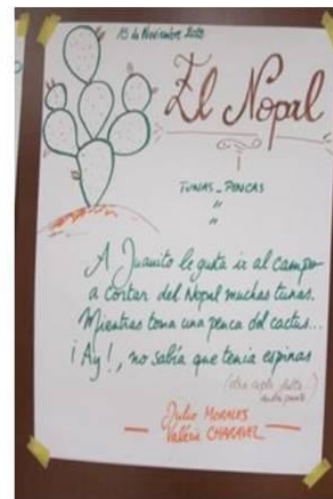 15 de Noviembre
El Nopal
TUNAS - PENCAS
"
"
A Juanito le gusta ir al campo
a cortar del Nopal muchas tunas.
Mientras toma una penca del cactus...
¡Ay!, no sabía que tenía espinas
Julio MORALES
Valérie CHARAVEL